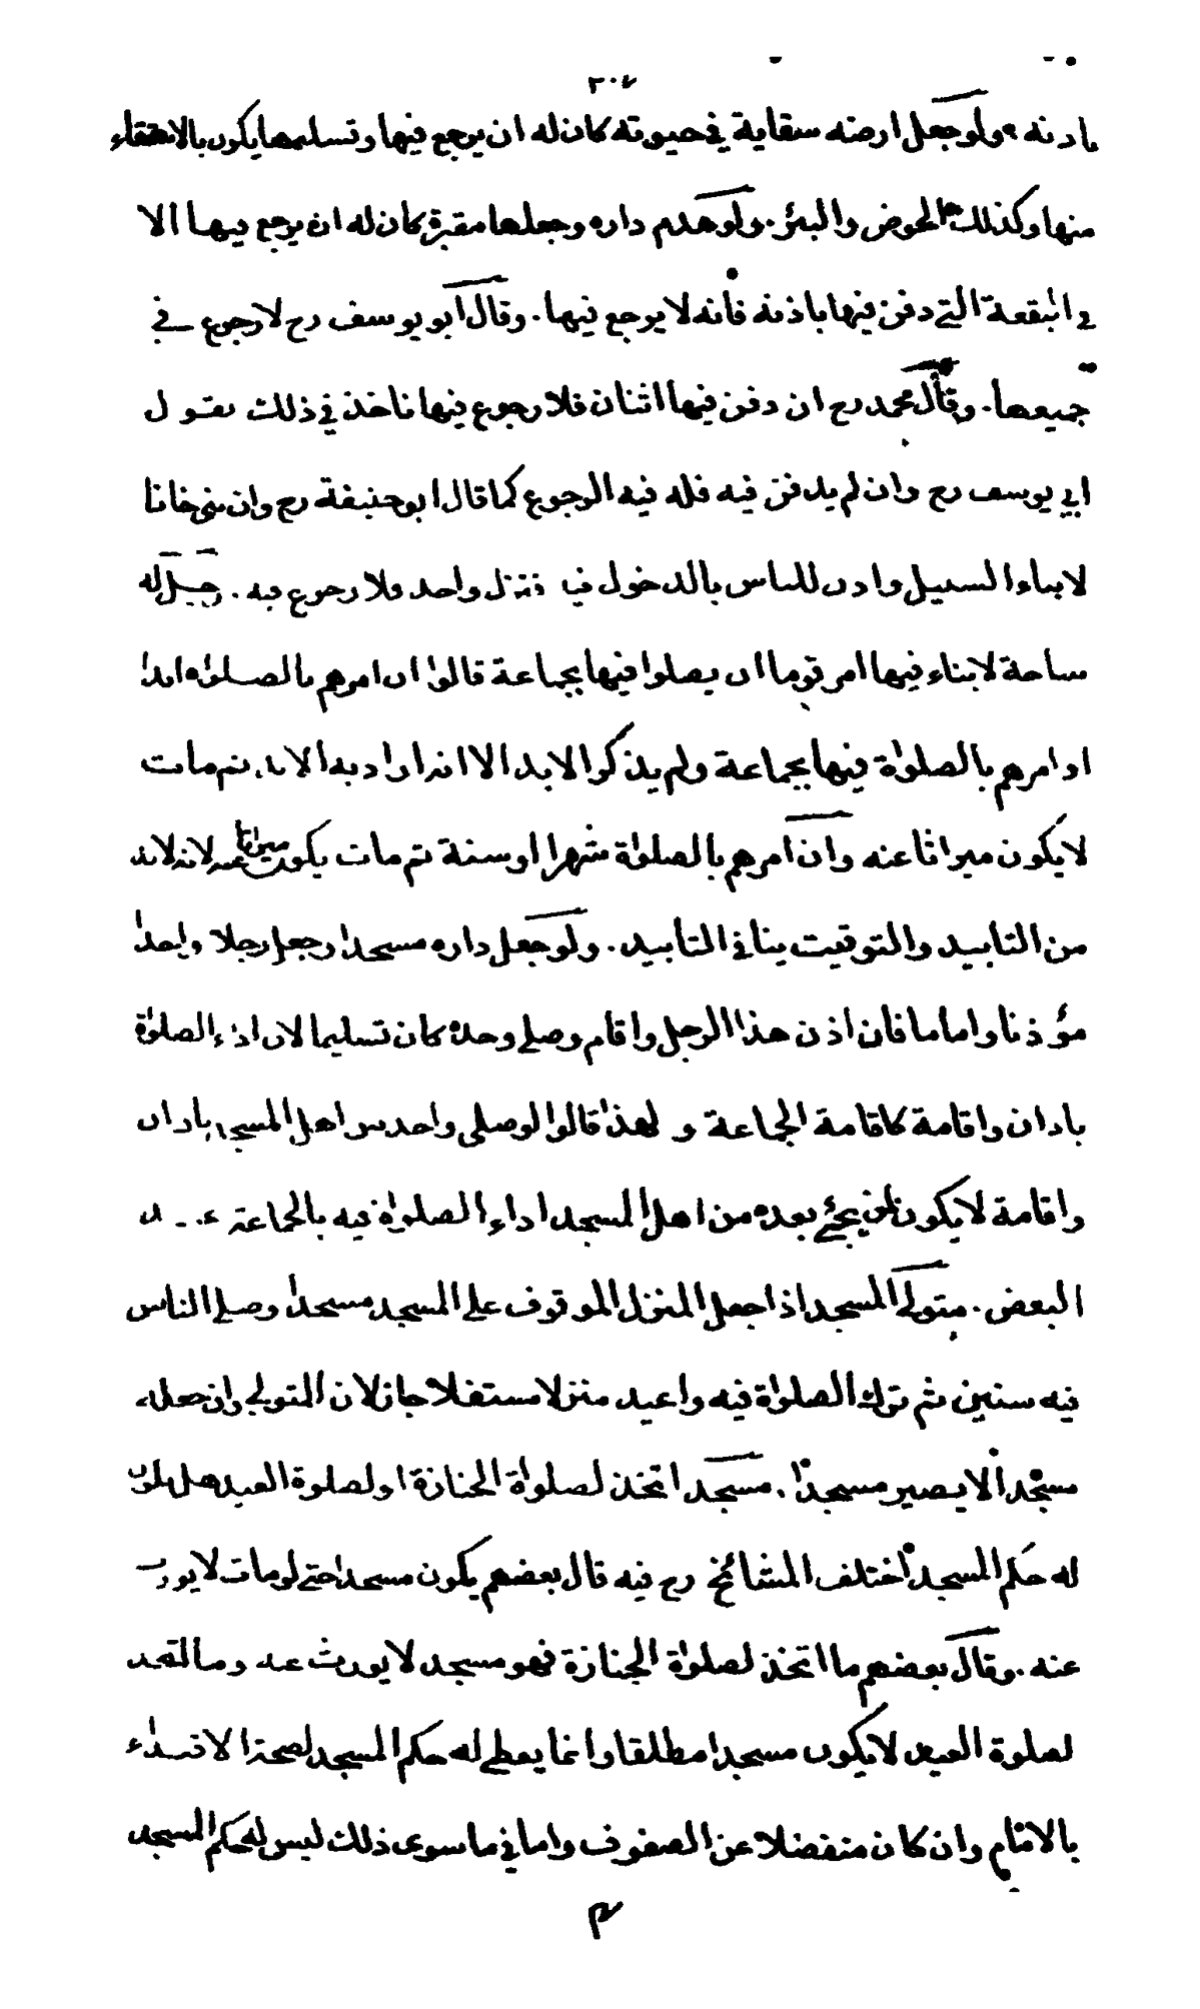 ٣٠٧
باذنه ولو جعل ارضه سقاية في حيوته كان له ان يرجع فيها وتسليمها يكون بالاستقاء
منها وكذلك الحوض والبئر. ولو هدم داره وجعلها مقبرة كان له ان يرجع فيها الا
في البقعة التي دفن فيها باذنه فانه لا يرجع فيها. وقال ابو يوسف رح لا رجوع في
جميعها. وقال محمد رح ان دفن فيها اثنان فلا رجوع فيها ناخذ في ذلك بقول
ابي يوسف رح وان لم يدفن فيه فله فيه الرجوع كما قال ابو حنيفة رح وان بنى خانا
لابناء السبيل واذن للناس بالدخول فيه فنزل واحد فلا رجوع فيه. رجل له
ساحة لا بناء فيها امر قوما ان يصلوا فيها بجماعة قالوا ان امرهم بالصلوة ابدا
او امرهم بالصلوة فيها بجماعة ولم يذكر الابد الا انه اراد به الابد ثم مات
لا يكون ميراثا عنه وان امرهم بالصلوة شهرا او سنة ثم مات يكون ميراثا عنه لانه لابد
من التابيد والتوقيت ينافي التابيد. ولو جعل داره مسجدا وجعل رجلا واحدا
مؤذنا واماما فان اذن هذا الرجل واقام وصلى وحده كان تسليما لان اداء الصلوة
باذان واقامة كاقامة الجماعة ولهذا قالوا لو صلى واحد من اهل المسجد باذان
واقامة لا يكون لمن يجئ بعده من اهل المسجد اداء الصلوة فيه بالجماعة
البعض. متولي المسجد اذا جعل المنزل الموقوف على المسجد مسجدا وصلى الناس
فيه سنين ثم ترك الصلوة فيه واعيد منزلا مستغلا جاز لان المتولي وان جعله
مسجدا لا يصير مسجدا. مسجد اتخذ لصلوة الجنازة او لصلوة العيد هل يكون
له حكم المسجد اختلف المشائخ رح فيه قال بعضهم يكون مسجدا حتى لو مات لا يورث
عنه. وقال بعضهم ما اتخذ لصلوة الجنازة فهو مسجد لا يورث عنه وما اتخذ
لصلوة العيد لا يكون مسجدا مطلقا وانما يعطى له حكم المسجد لصحة الاقتداء
بالامام وان كان منفصلا عن الصفوف واما في ما سوى ذلك ليس له حكم المسجد